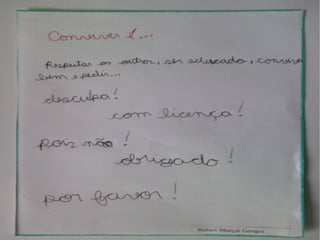 Conviver é...
Respeitar os outros, ser educado, conviver
bem e pedir...
desculpa!
com licença!
pois não!
obrigado!
por favor!
Rafael Marçal